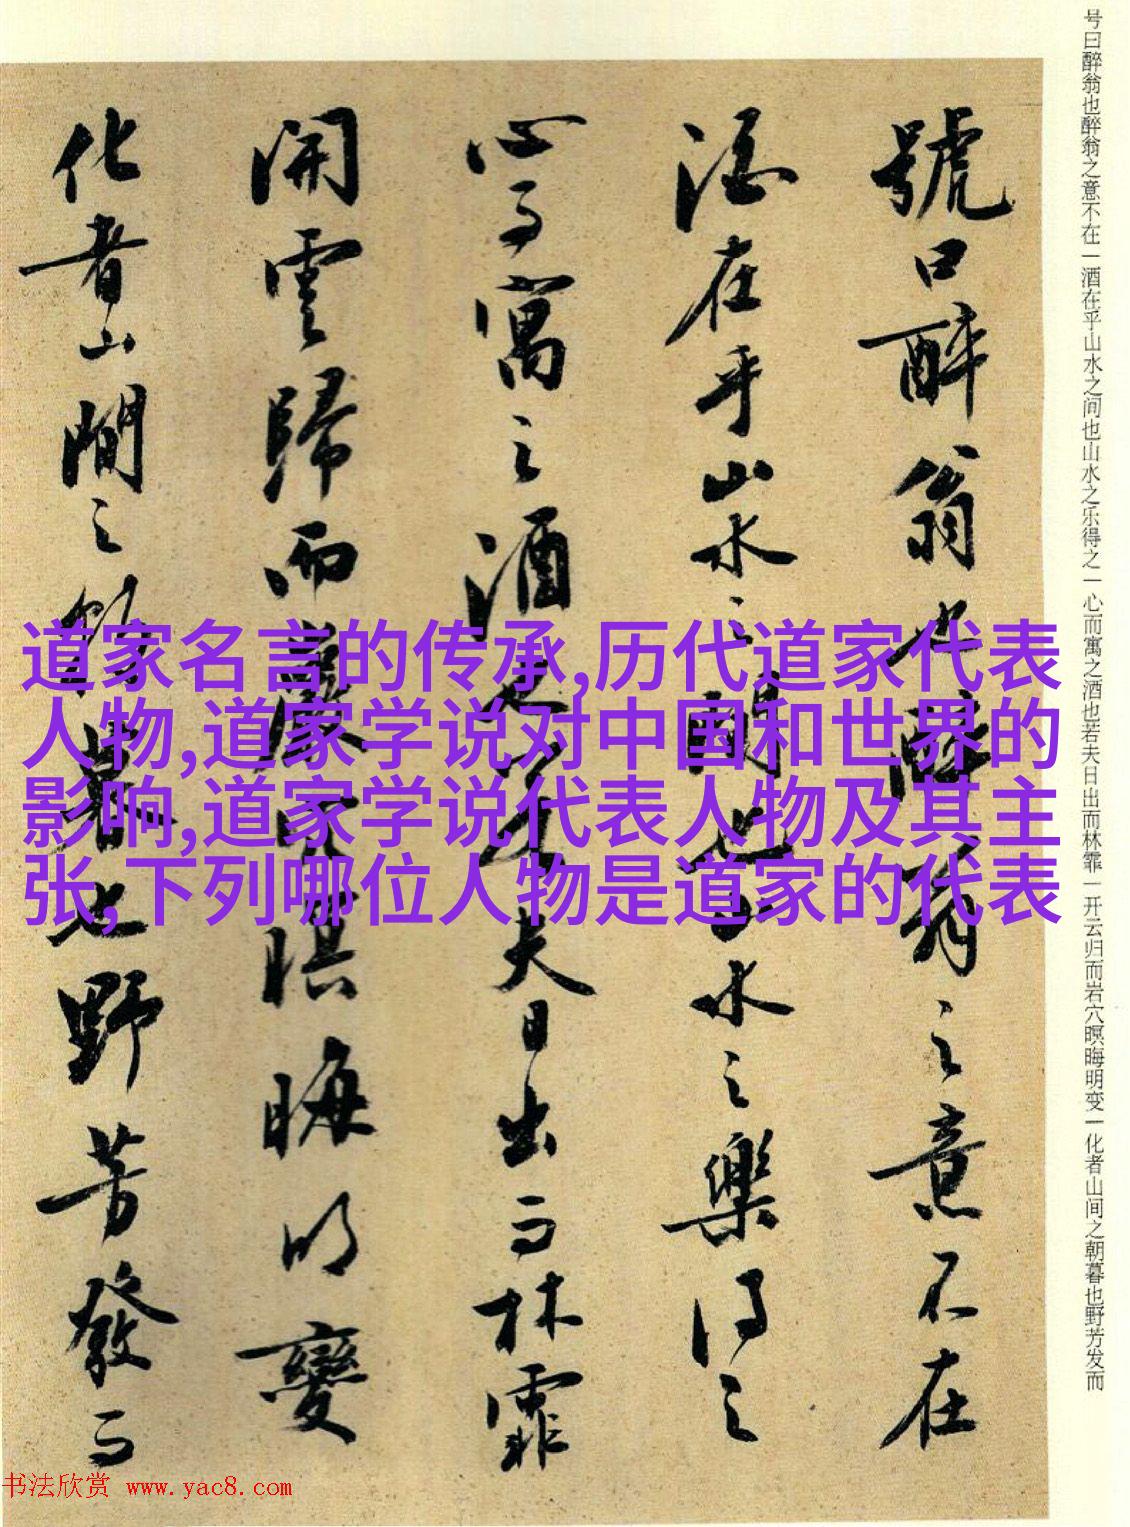 号曰醉翁也醉翁之意不在一酒在乎山水之间也山水之乐得之一心而寓之酒也若夫日出而林霏一开云归而岩穴暝晦明变一化者山间之朝暮也野芳发而
號曰醉翁也醉翁之意不在
酒在乎山水之間也山水之樂得之
心而寓之酒也若夫日出而林霏
開雲歸而巖穴暝晦明變
化者山間之朝暮也野芳發而
道家名言的传承,历代道家代表
人物,道家学说对中国和世界的
影响,道家学说代表人物及其主
张,下列哪位人物是道家的代表
书法欣赏 www.yac8.com